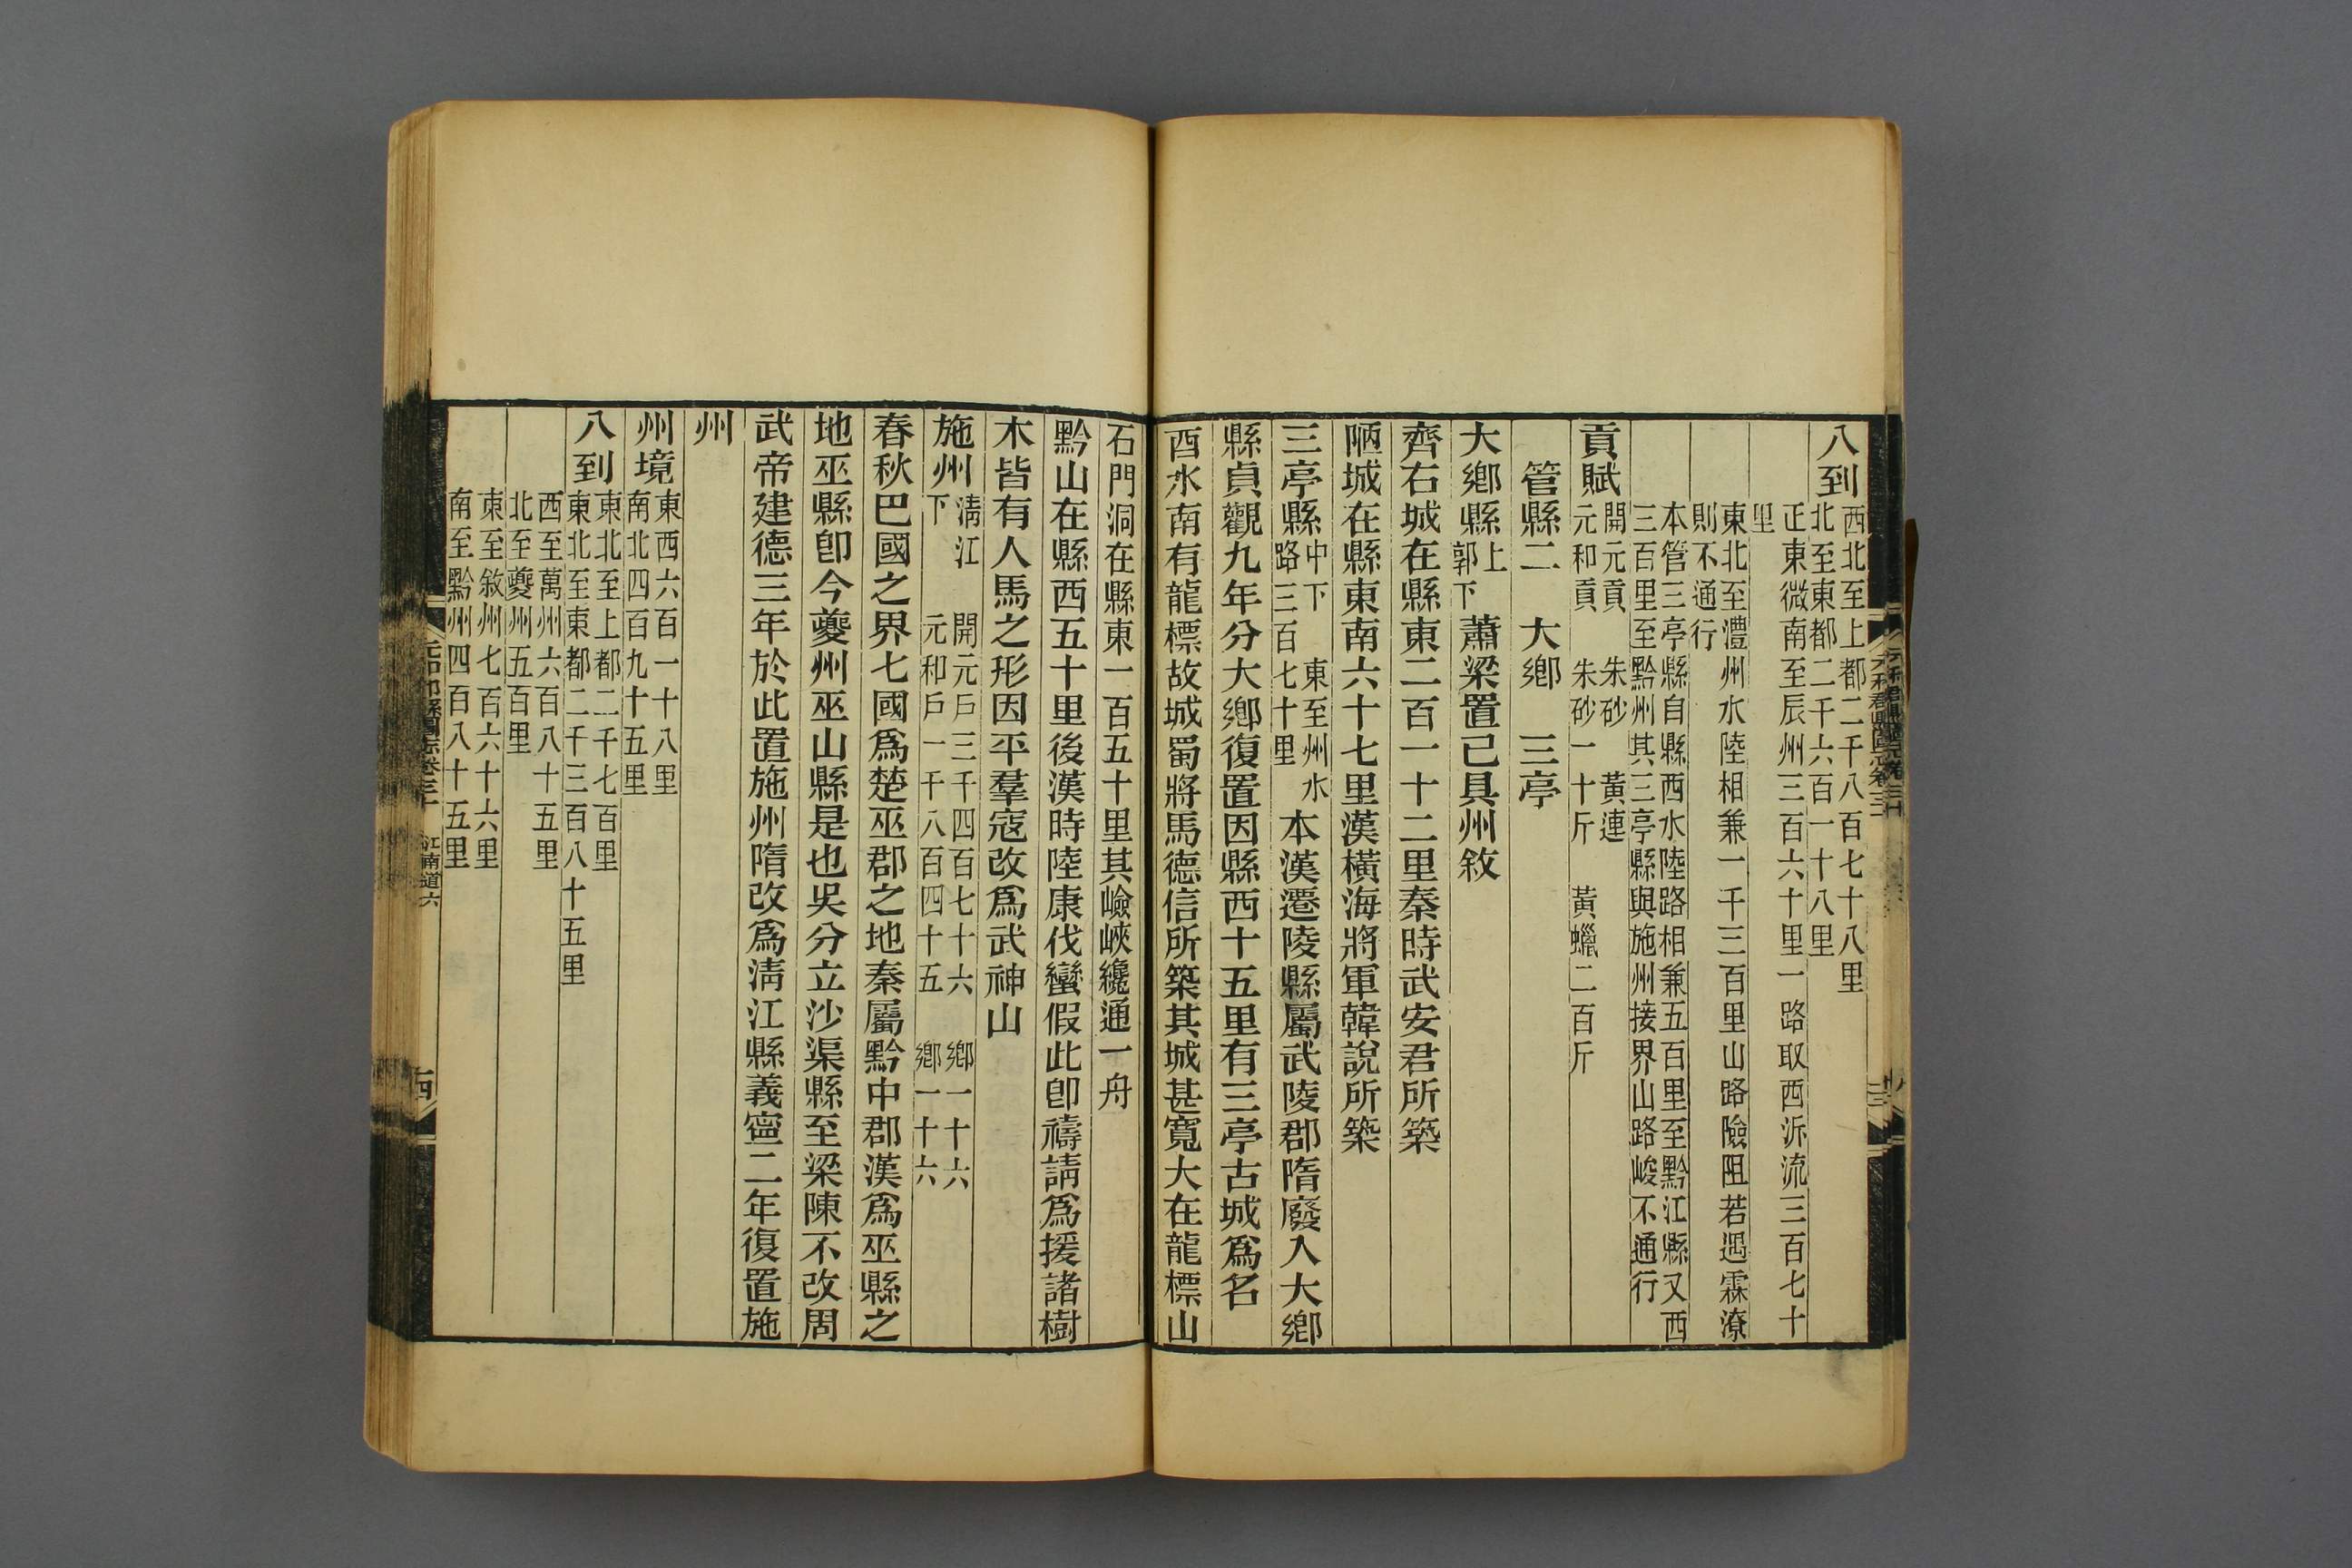 八到西北至上都二千八百七十八里
北至東都二千六百一十八里
正東微南至辰州三百六十里一路取西泝流三百七十
里
東北至澧州水陸相兼一千三百里山路險阻若遇霖潦
則不通行
本管三亭縣自縣西水陸路相兼五百里至黔江縣又西
三百里至黔州其三亭縣與施州接界山路峻不通行
貢賦開元貢 朱砂 黃連
元和貢 朱砂一十斤 黃蠟二百斤
管縣二 大鄉 三亭
大鄉縣上
郭下 蕭梁置已具州敘
齊右城在縣東二百一十二里秦時武安君所築
陋城在縣東南六十七里漢橫海將軍韓說所築
三亭縣中下 東至州水
路三百七十里 本漢遷陵縣屬武陵郡隋廢入大鄉
縣貞觀九年分大鄉復置因縣西十五里有三亭古城爲名
酉水南有龍標故城蜀將馬德信所築其城甚寬大在龍標山
石門洞在縣東一百五十里其嶮峽纔通一舟
黔山在縣西五十里後漢時陸康伐蠻假此卽禱請爲援諸樹
木皆有人馬之形因平羣寇改爲武神山
施州清江 開元戶三千四百七十六 鄉一十六
下 元和戶一千八百四十五 鄉一十六
春秋巴國之界七國爲楚巫郡之地秦屬黔中郡漢爲巫縣之
地巫縣卽今夔州巫山縣是也吳分立沙渠縣至梁陳不改周
武帝建德三年於此置施州隋改爲清江縣義寧二年復置施
州
州境東西六百一十八里
南北四百九十五里
八到東北至上都二千七百里
東北至東都二千三百八十五里
西至萬州六百八十五里
北至夔州五百里
東至敘州七百六十六里
南至黔州四百八十五里
江南道六